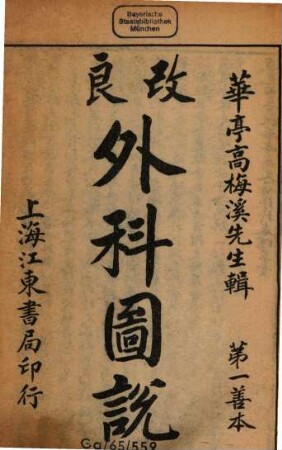 Bayerische
Staatsbibliothek
München
華亭高梅溪先生輯 第一善本
改良
外科圖說
上海江東書局印行
Ga/65/559